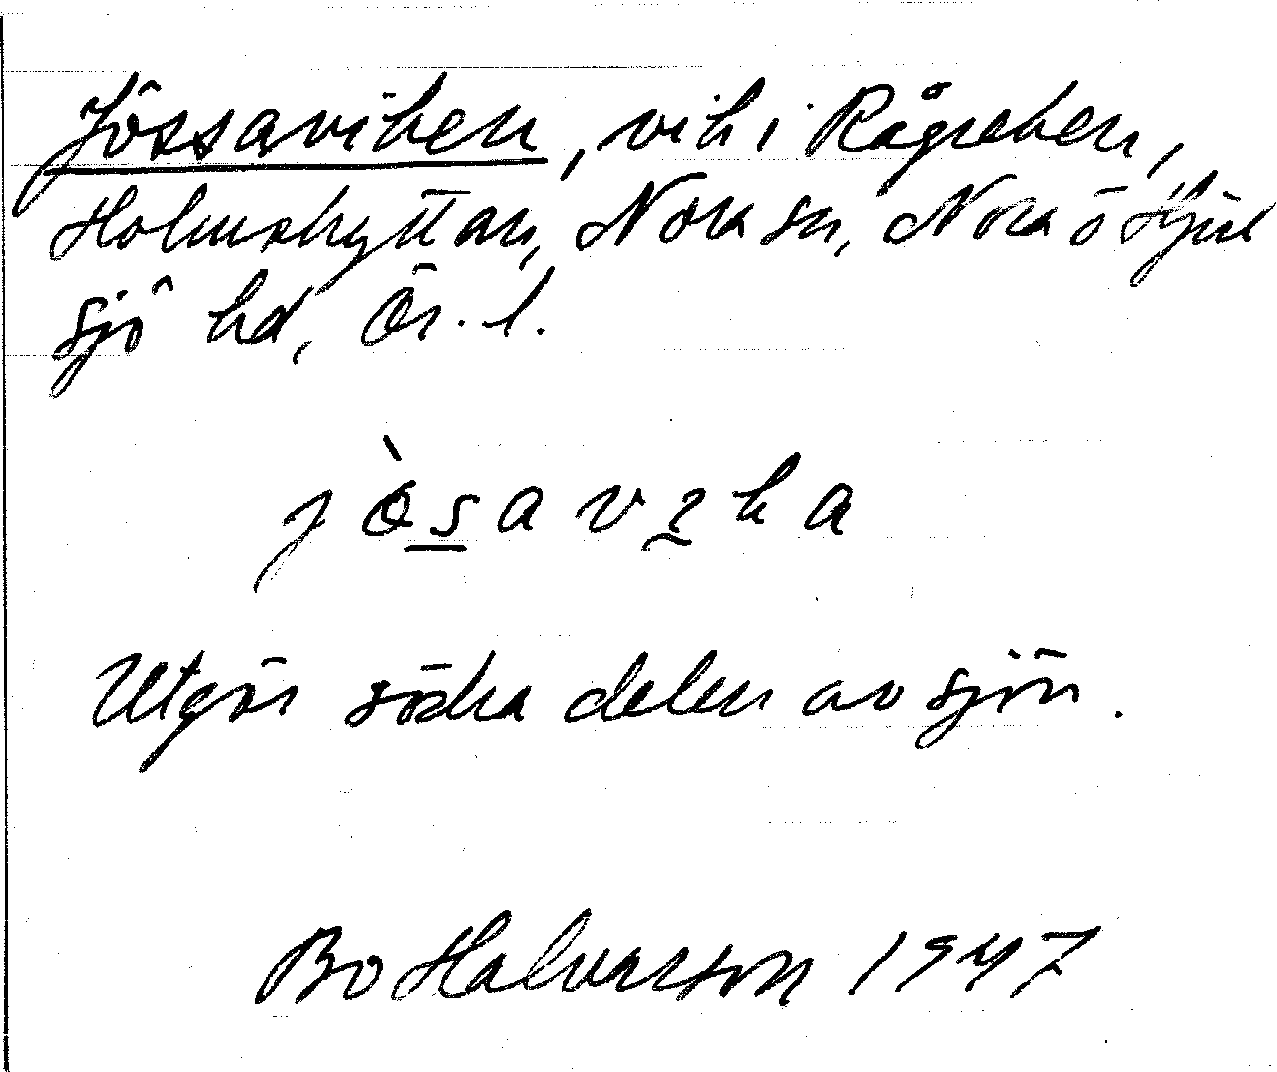 Jössaviken, vik i Rågreken,
Holmshyttan, Nora sn, Nora ö Hjul
sjö hd, Ör. l.
Utgör södra delen av sjön.
Bo Halvarson 1947